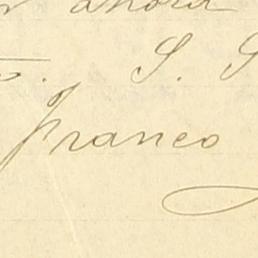 ahora
S. S
franco